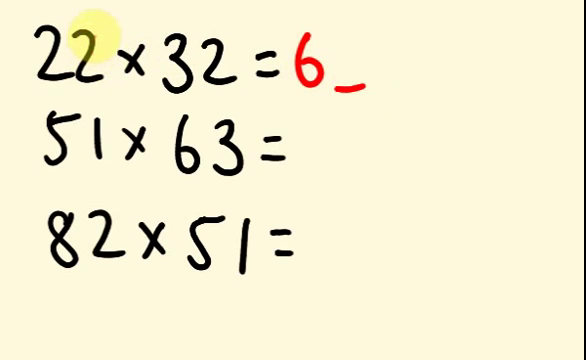 22 × 32 = 6_
51 × 63 =
82 × 51 =